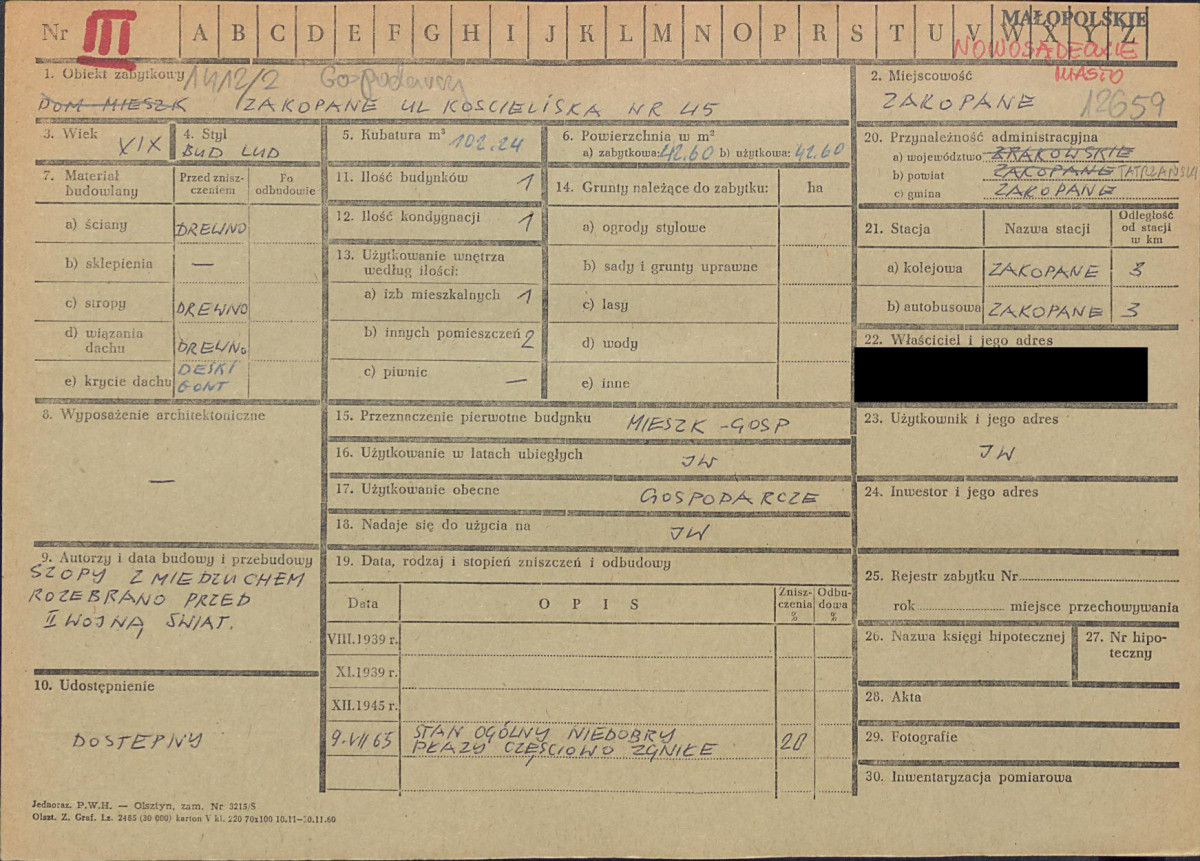 Nr III A B C D E F G H I J K L M N O P R S T U V W X Y Z
MAŁOPOLSKIE
NOWOSĄDECKIE
MIASTO
1. Obiekt zabytkowy 1412/2 Gospodarczy
DOM MIESZK ZAKOPANE UL KOSCIELISKA NR 45
2. Miejscowość
ZAKOPANE 12659
3. Wiek
XIX
4. Styl
BUD LUD
5. Kubatura m³ 102.24
6. Powierzchnia w m²
a) zabytkowa: 42.60 b) użytkowa: 42.60
7. Materiał budowlany
Przed zniszczeniem
Po odbudowie
a) ściany DREWNO
b) sklepienia —
c) stropy DREWNO
d) wiązania dachu DREWNO
e) krycie dachu DESKI GONT
8. Wyposażenie architektoniczne
—
9. Autorzy i data budowy i przebudowy
SZOPY Z MIEDZUCHEM
ROZEBRANO PRZED
II WOJNĄ ŚWIAT.
10. Udostępnienie
DOSTEPNY
11. Ilość budynków 1
12. Ilość kondygnacji 1
13. Użytkowanie wnętrza według ilości:
a) izb mieszkalnych 1
b) innych pomieszczeń 2
c) piwnic —
14. Grunty należące do zabytku: ha
a) ogrody stylowe
b) sady i grunty uprawne
c) lasy
d) wody
e) inne
15. Przeznaczenie pierwotne budynku MIESZK - GOSP
16. Użytkowanie w latach ubiegłych JW
17. Użytkowanie obecne GOSPODARCZE
18. Nadaje się do użycia na JW
19. Data, rodzaj i stopień zniszczeń i odbudowy
Data
O P I S
Zniszczenia %
Odbudowa %
VIII.1939 r.
XI.1939 r.
XII.1945 r.
9.VII 65 STAN OGÓLNY NIEDOBRY
PŁAZY CZĘŚCIOWO ZGNIŁE 20
20. Przynależność administracyjna
a) województwo KRAKOWSKIE
b) powiat ZAKOPANE TATRZAŃSKI
c) gmina ZAKOPANE
21. Stacja
Nazwa stacji
Odległość od stacji w km
a) kolejowa ZAKOPANE 3
b) autobusowa ZAKOPANE 3
22. Właściciel i jego adres
23. Użytkownik i jego adres
JW
24. Inwestor i jego adres
25. Rejestr zabytku Nr
rok miejsce przechowywania
26. Nazwa księgi hipotecznej
27. Nr hipoteczny
28. Akta
29. Fotografie
30. Inwentaryzacja pomiarowa
Jednoraz. P.W.H. — Olsztyn, zam. Nr 3215/S
Olszt. Z. Graf. Lz. 2485 (30 000) karton V kl. 220 70x100 10.11—30.11.60